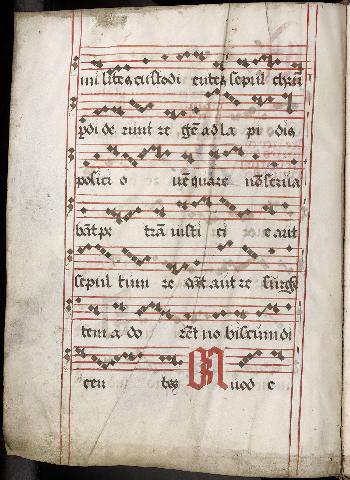 mi lites custodi entes sepul chrū
pdi de runt re gē ad la pi dis
positi o nē quare nō serua
bāt pe trā iusti ci e aut
sepul tum re dāt aut re surgē
tem a do rēt no biscum di
cen tes Quod e